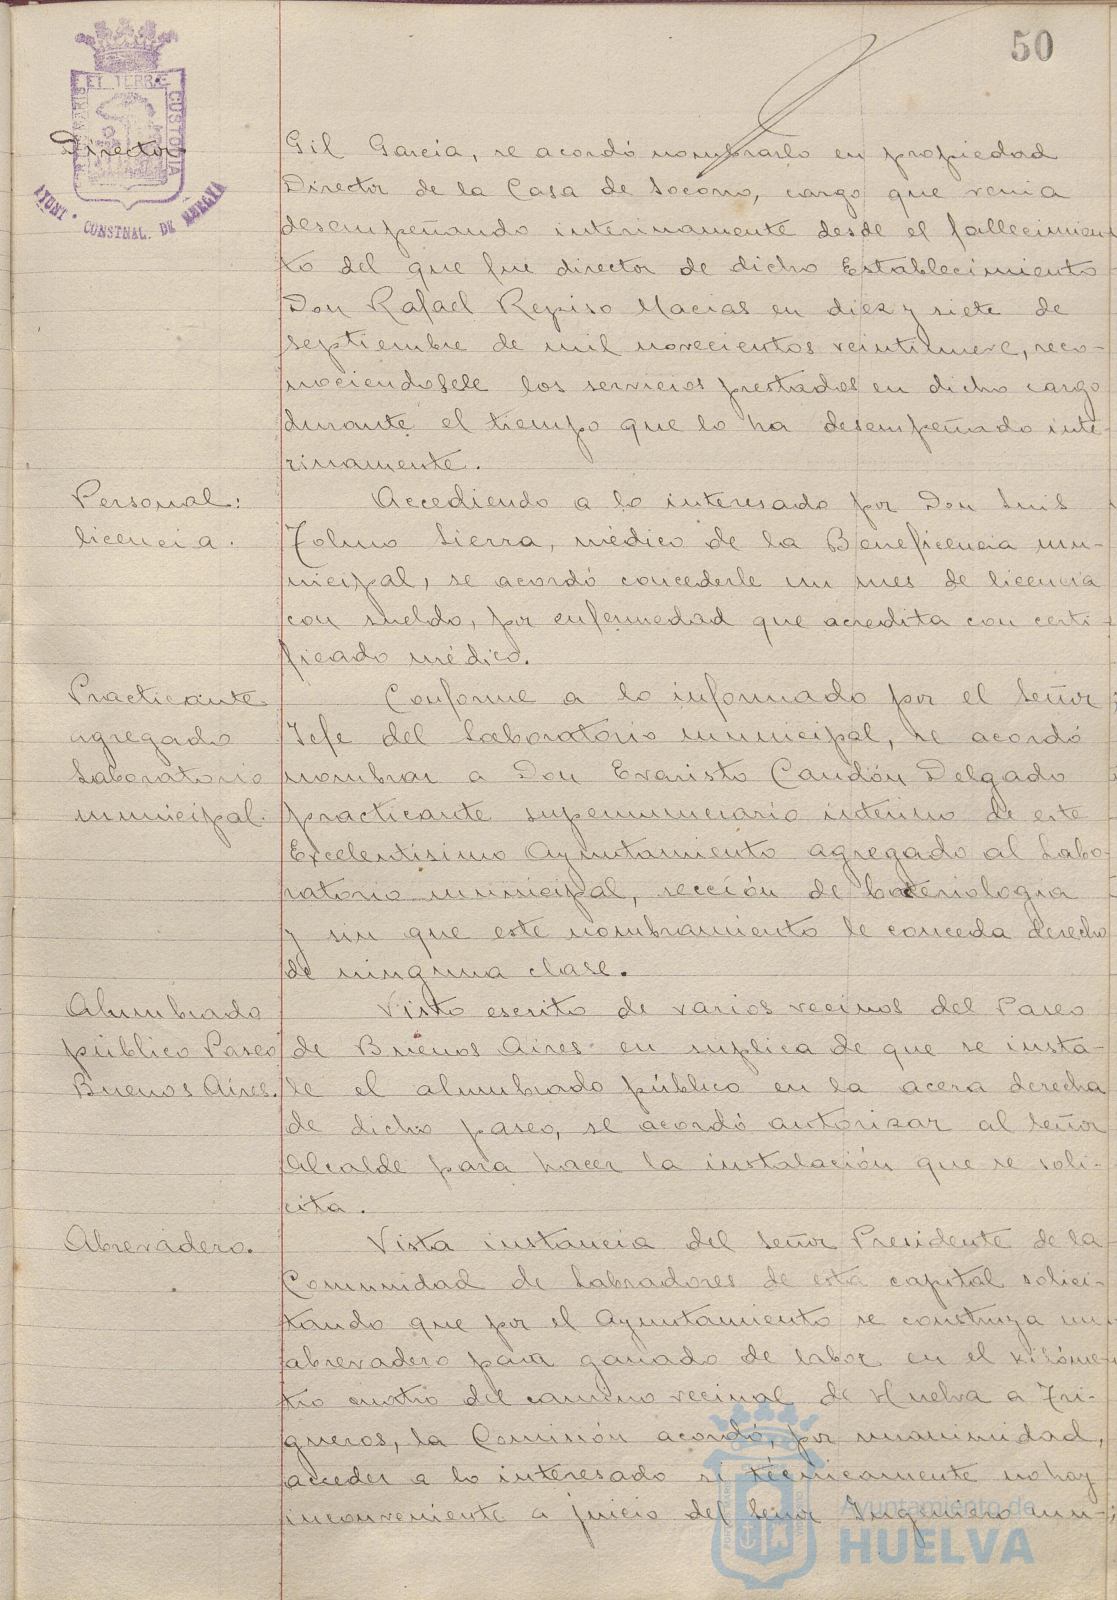 50
Director
Gil García, se acordó nombrarlo en propiedad
Director de la Casa de Socorro, cargo que venia
desempeñando interinamente desde el fallecimien-
to del que fue director de dicho Establecimiento
Don Rafael Repiso Macias en diez y siete de
septiembre de mil novecientos veintinueve, reco-
nociendosele los servicios prestados en dicho cargo
durante el tiempo que lo ha desempeñado inte-
rinamente.
Personal:
licencia.
Accediendo a lo interesado por Don Luis
Tolmo Sierra, médico de la Beneficencia mu-
nicipal, se acordó concederle un mes de licencia
con sueldo, por enfermedad que acredita con certi-
ficado médico.
Practicante
agregado
Laboratorio
municipal.
Conforme a lo informado por el Señor
Jefe del Laboratorio municipal, se acordó
nombrar a Don Evaristo Candón Delgado
practicante supernumerario interino de este
Excelentisimo Ayuntamiento agregado al Labo-
ratorio municipal, sección de bacteriologia
y sin que este nombramiento le conceda derecho
de ninguna clase.
Alumbrado
público Paseo
Buenos Aires.
Visto escrito de varios vecinos del Paseo
de Buenos Aires en suplica de que se insta-
le el alumbrado público en la acera derecha
de dicho paseo, se acordó autorizar al Señor
Alcalde para hacer la instalación que se soli-
cita.
Abrevadero.
Vista instancia del Señor Presidente de la
Comunidad de Labradores de esta capital solici-
tando que por el Ayuntamiento se construya un
abrevadero para ganado de labor en el kilóme-
tro cuatro del camino vecinal de Huelva a Tri-
gueros, la Comisión acordó, por unanimidad,
acceder a lo interesado si técnicamente no hay
inconveniente a juicio del Señor Ingeniero mu-
ET TERRE CUSTODIA
AYUNT. CONSTNAL. DE HUELVA
Ayuntamiento de
HUELVA